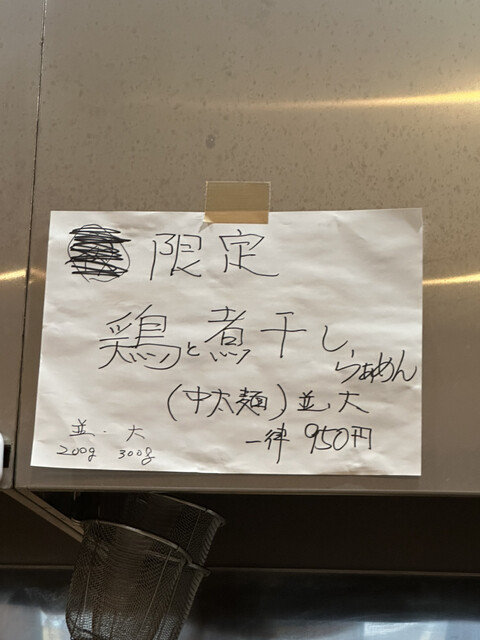 限定
鶏と煮干し
らぁめん
(中太麺) 並.大
一律 950円
並.大
200g 300g